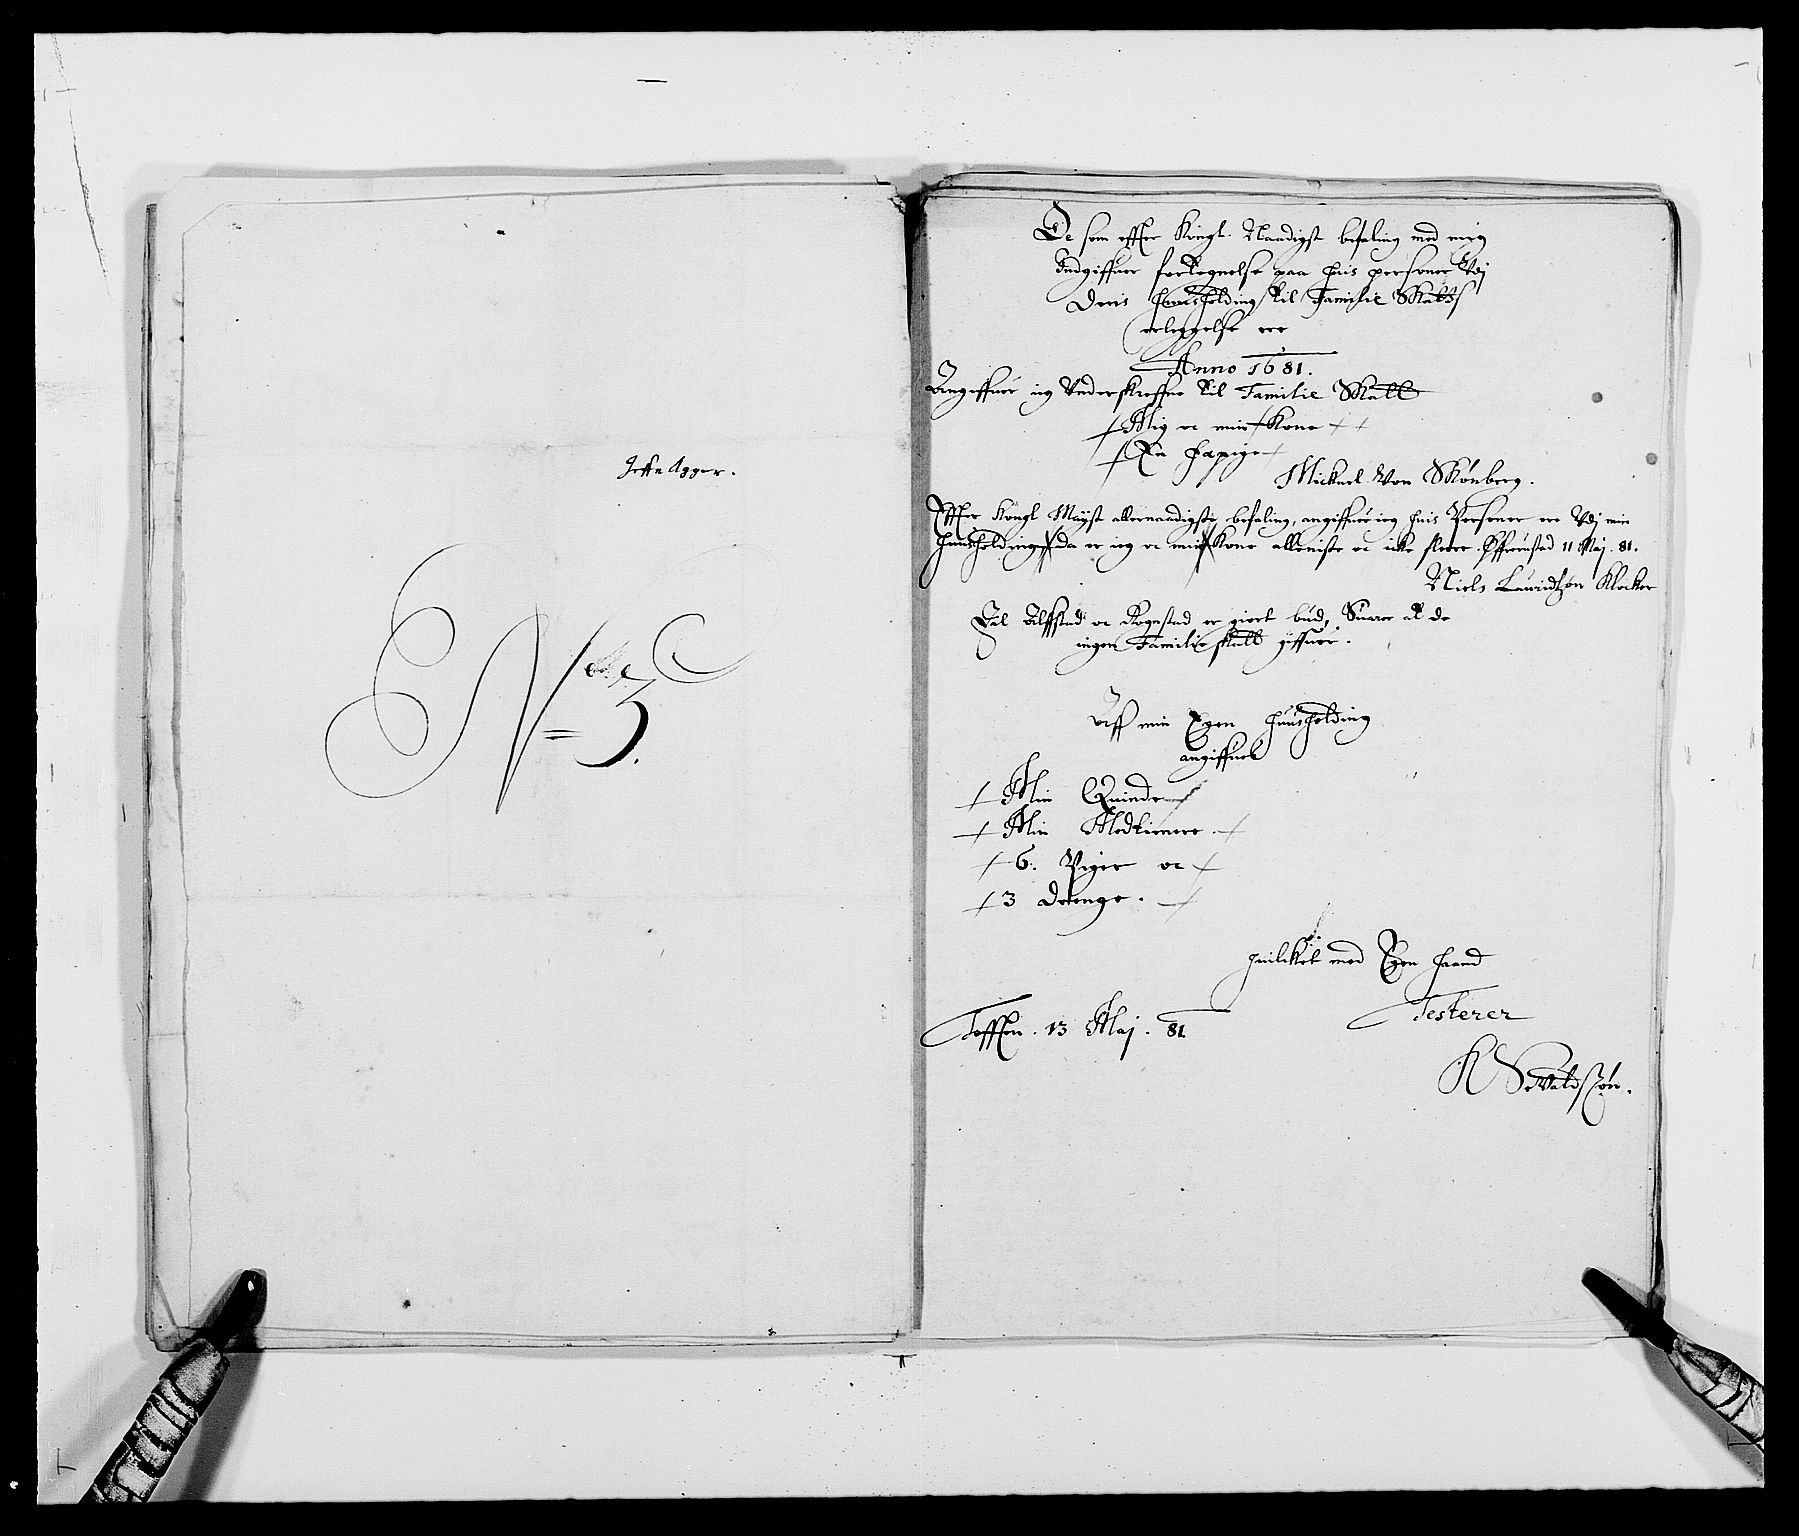 Jeffn Agger.
N= 3.
De som effter Kongl: Naadigst befaling med mig
Indgiffuer fortegnelse paa huis personer Udj
Deris huusholding til Familie Skatts
erleggelse ere
Anno 1681.
Angiffuer ieg Underskreffne til Familie Skatt
Mig oc min Kone
En Fapige
Mickael Von Skønberg.
Effter Kongl Mayst allernaadigste befaling, angiffuer ieg huis Personer ere Udj min
huusholding, da er ieg oc min Kone alleniste oc icke fleere. 11 Maj. 81.
Niels Lauridtzøn Klocker
Til oc Rognstad er giort bud, Suarer at de
ingen Familie skatt giffuer.
Aff min Egen huusholding
angiffuet
Min Quinde
Min Modtienere
6. Piger oc
3 drenge.
huilcket med Egen haand
Testerer
13 Maj. 81